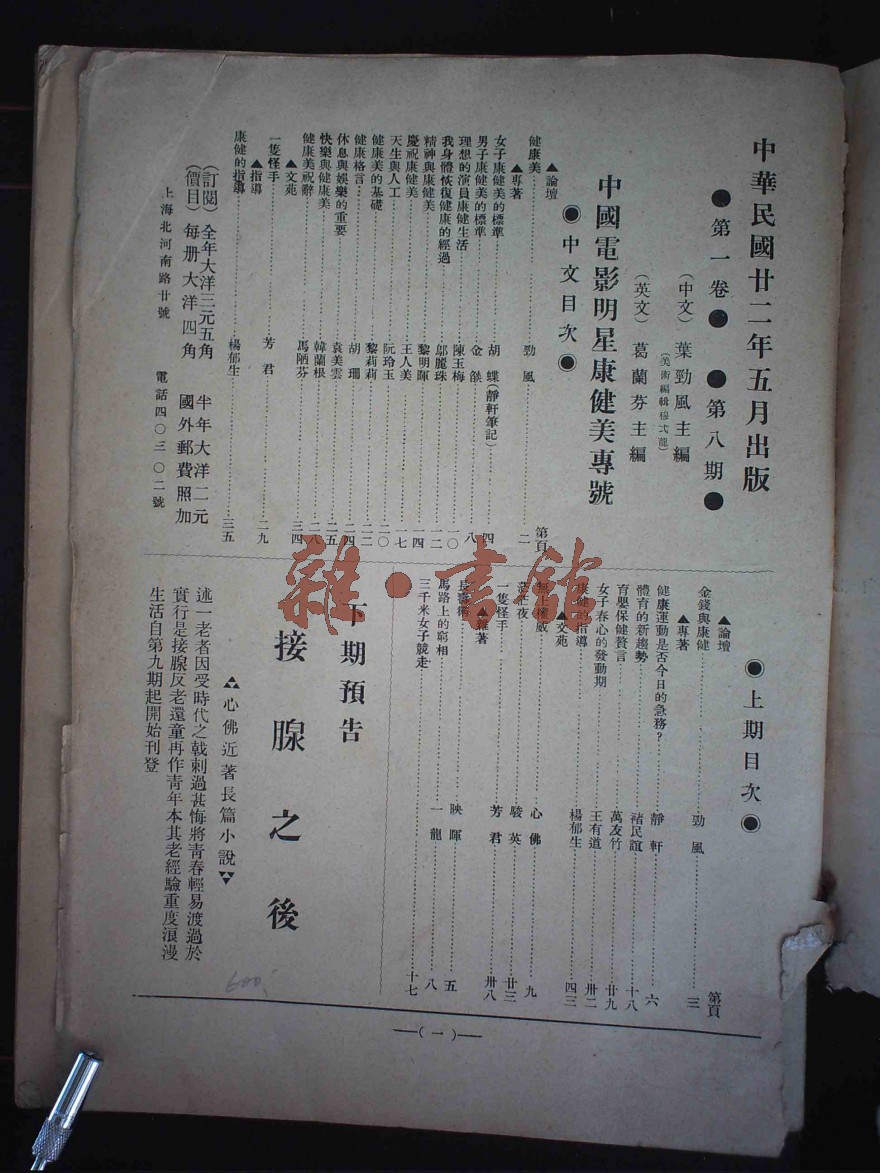 中華民國廿二年五月出版
●第一卷● ●第八期●
(中文)葉勁風主編
(美術編輯穆弌龍)
(英文)葛蘭芬主編
中國電影明星康健美專號
●中文目次●
第頁
▲論壇
健康美 勁風 二
▲專著
女子康健美的標準 胡蝶(靜軒筆記) 四
男子康健美的標準 金燄 八
理想的演員康健生活 陳玉梅 一〇
我身體恢復健康的經過 鄔麗珠 一二
精神與康健美 黎明暉 一四
慶祝康健美 王人美 一七
天生與人工 阮玲玉 二〇
健康美的基礎 黎莉莉 二二
健康格言 胡珊 二四
休息與娛樂的重要 袁美雲 二五
快樂與健康美 韓蘭根 二八
健康美祝辭 馬陋芬 三四
▲文苑
一隻怪手 芳君 二九
▲指導
康健的指導 楊郁生 三五
(訂閱)全年大洋三元五角 半年大洋二元
(價目)每册大洋四角 國外郵費照加
上海北河南路廿號 電話四〇三〇二號
●上期目次●
第頁
▲論壇
金錢與康健 勁風 三
▲專著
健康運動是否今日的急務? 靜軒 六
體育的新趨勢 褚民誼 十八
育嬰保健贅言 萬友竹 廿九
女子春心的發動期 王有道 卅二
康健的指導 楊郁生 四三
▲文苑
無上權威 心佛 九
茫茫夜 駿英 廿三
一隻怪手 芳君 卅八
▲雜著
長壽術 映暉 五
馬路上的窮相 一龍 八
三千米女子競走 十七
下期預告
接腺之後
▲▲心佛近著長篇小說▼▼
述一老者因受時代之戟刺過甚悔將青春輕易渡過於
實行是接腺反老還童再作青年本其老經驗重度浪漫
生活自第九期起開始刊登
—(一)—
雜·書館